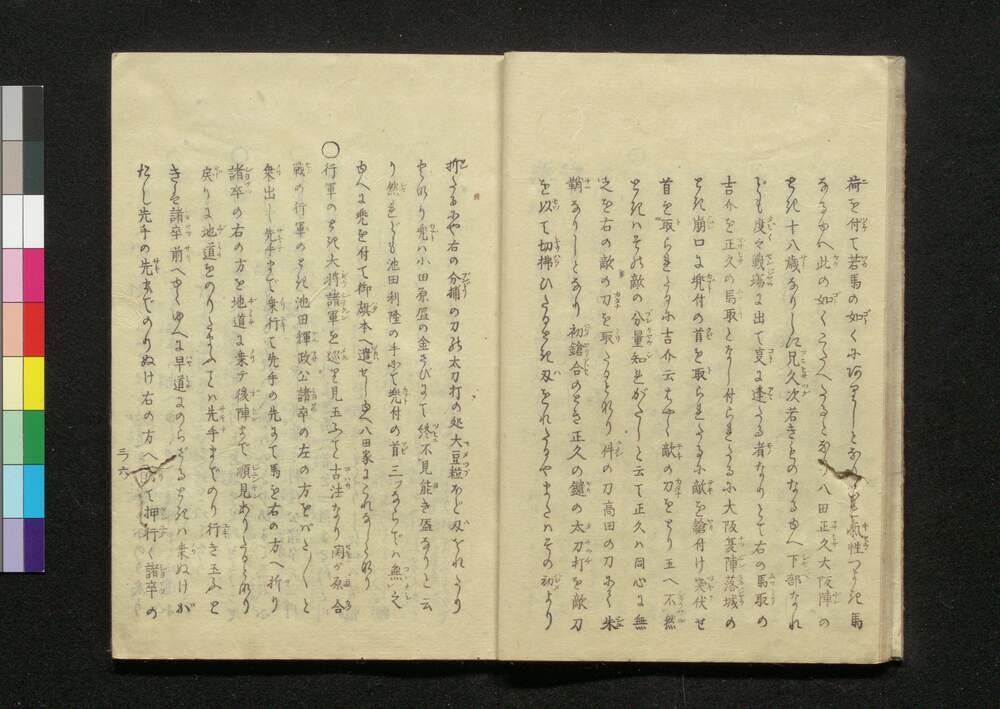 荷を付て若馬の如く
なるゆへ此の如くこたへたるとなり八田正久大阪陣の
とき十八歳なりしに兄久次若きものなるゆへ下部なれ
ども度々戦場に出て変に逢たる者なりとて右の馬取の
吉介を正久の馬取となし付られたるに大阪夏陣落城の
とき崩口に兜付の首を取られたるに敵を鎗付け突伏せ
首を取られたるに吉介云はやく敵の刀をとり玉へ不然
ときはその敵の分量知れがたしと云て正久は同心に無
之を右の敵の刀を取たるとなり件の刀高田の刀にて朱
鞘なりしとなり初鎗合のとき正久の鑓の太刀打を敵刀
を以て切拂ひたるとき刄をれたるやまたはその初より
折たるや右の分捕の刀れ太刀打の処大豆粒ほど刄をれたり
又なり兜は小田原盔の金さびにて終不見能き盔なりと云
り然れども池田利隆の手にて兜付の首三ツならでは無之
ゆへに兜を付て御旗本へ遣せしゆへ八田家にこれなしとなり
○行軍のとき大将諸軍を巡り見玉ふこと古法なり関が原合
戦の行軍のとき池田輝政公諸卒の左の方をはこしくと
乗出し先手まで乗行て先手の先にて馬を右の方へ折り
諸卒の右の方を地道に乗テ後陣まで順見ありたるとなり
戻りに地道をのりたまふては先手までのり行き玉ふと
きは諸卒前へ申くゆへ早道にのらざるときは乗ぬけが
たし先手の先までのりぬけ右の方へ折て押行く諸卒の
三六